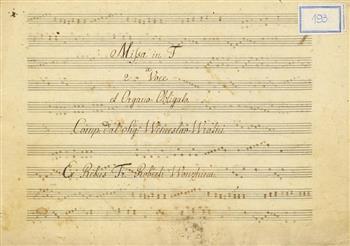 193
Missa in F
2 Voce
et Organo Obligato
Comp. Dal Sig. Weneslao Wratni
Ex Rebus Fr. Roberti